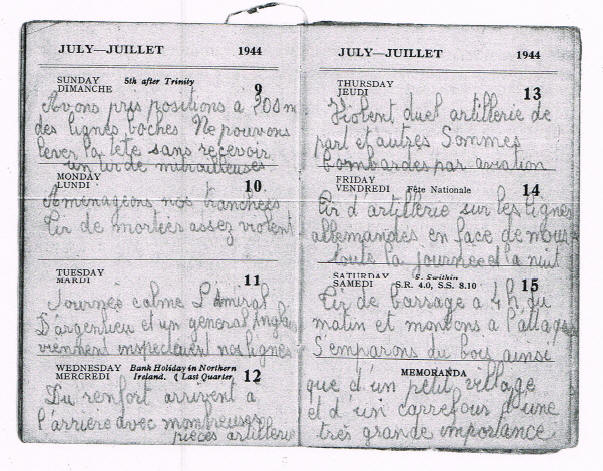 JULY—JUILLET 1944
SUNDAY 5th after Trinity
DIMANCHE 9
Avons pris positions a 200 m
des lignes boches Ne pouvons
lever la tête sans recevoir
un tir de mitrailleuses
MONDAY
LUNDI 10
Aménageons nos tranchées
Tir de mortier assez violent
TUESDAY
MARDI 11
Journée calme L'Amiral
D'argenlieu et un general Anglais
viennent inspecter nos lignes
WEDNESDAY Bank Holiday in Northern
MERCREDI Ireland. (Last Quarter 12
Du renfort arrivent a
l'arrière avec nombreuses
pièces artillerie
JULY—JUILLET 1944
THURSDAY
JEUDI 13
Violent duel artillerie de
part et autres Sommes
bombardés par aviation
FRIDAY
VENDREDI Fête Nationale 14
Tir d'artillerie sur les lignes
allemandes en face de nous
toute la journée et la nuit
SATURDAY S. Swithin
SAMEDI S.R. 4.0, S.S. 8.10 15
Tir de barrage a 4 h du
matin et montons a l'attaque
S'emparons du bois ainsi
MEMORANDA
que d'un petit village
et d'un carrefour d'une
très grande importance